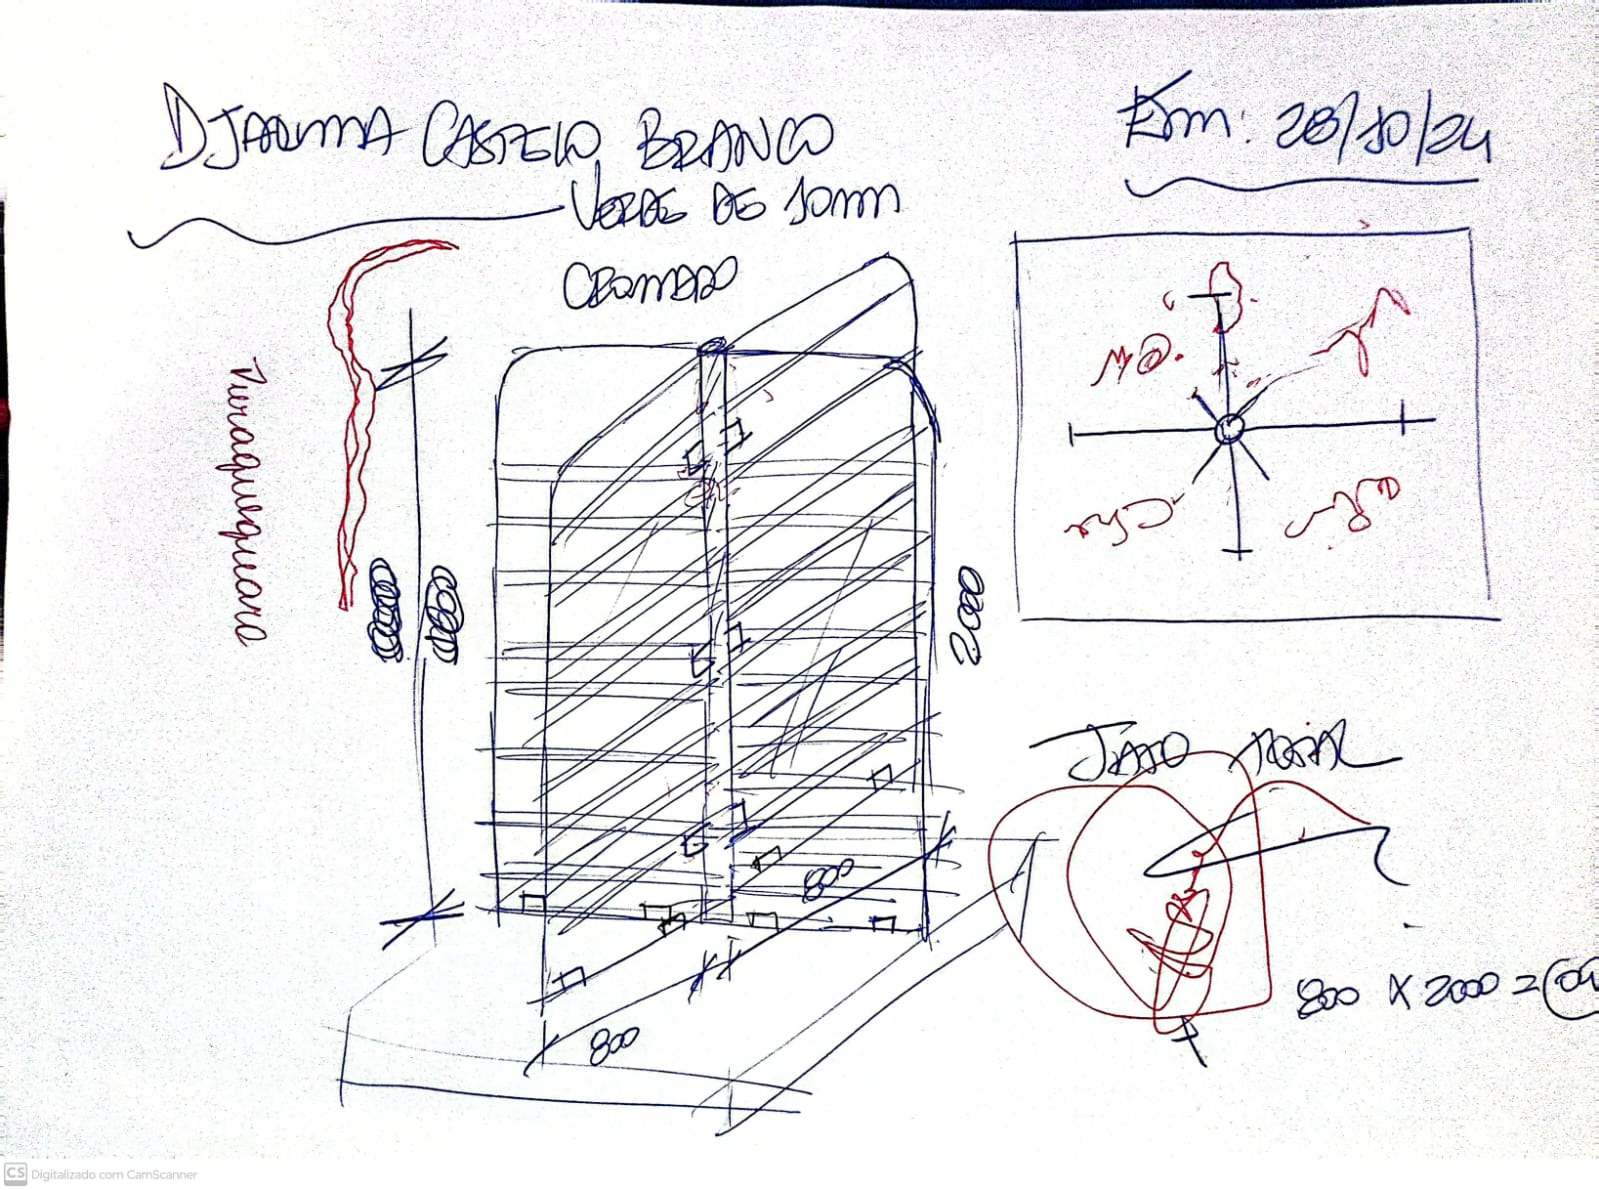 DJALMA CASTELO BRANCO
Em: 28/10/24
VERDE DE 10mm
CROMADO
Puraquequara
2000
JATO TOTAL
800
800
800 X 2000 = 04
CS Digitalizado com CamScanner